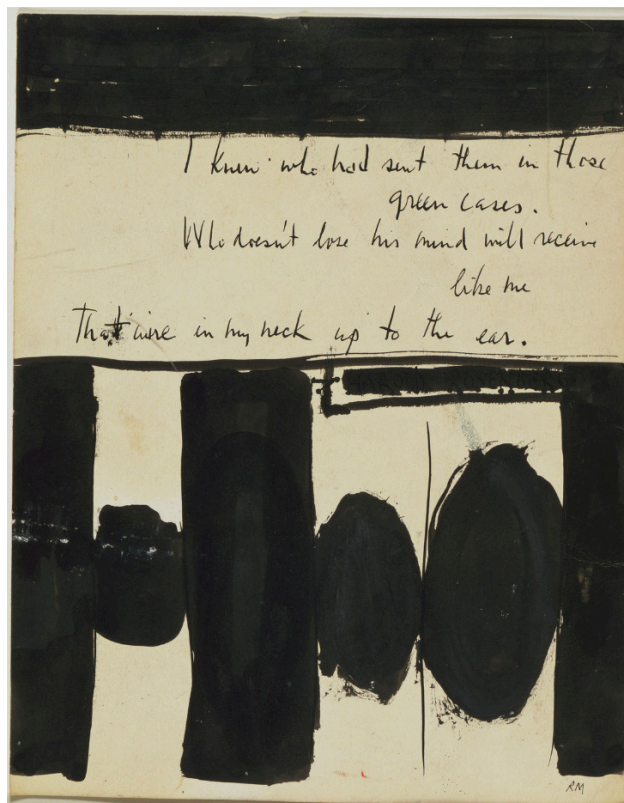 I knew who had sent them in those
green cases.
Who doesn't lose his mind will receive
like me
That wire in my neck up to the ear.
HAROLD ROSENBERG
RM